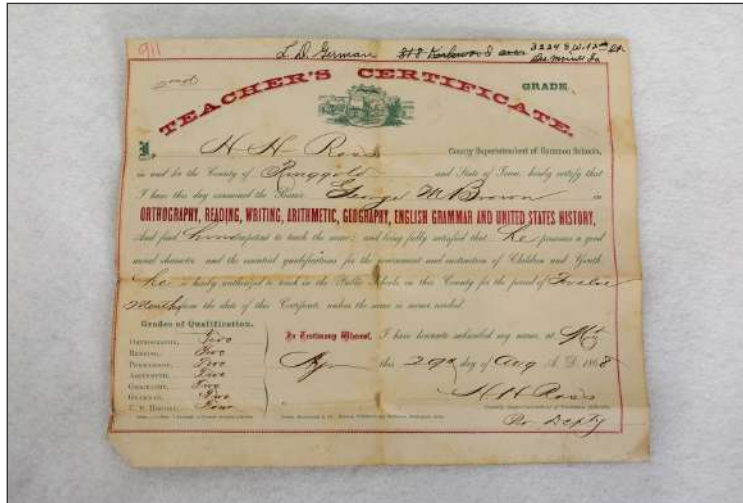 911
L. D. German 818 Kirkwood ave 3224 S.W. 12th St.
Des Moines Ia
2nd GRADE.
TEACHER'S CERTIFICATE.
I, H H Ross County Superintendent of Common Schools,
in and for the County of Ringgold and State of Iowa, hereby certify that
I have this day examined the Bearer George M Brown in
ORTHOGRAPHY, READING, WRITING, ARITHMETIC, GEOGRAPHY, ENGLISH GRAMMAR AND UNITED STATES HISTORY,
And find him competent to teach the same; and being fully satisfied that he possesses a good
moral character, and the essential qualifications for the government and instruction of Children and Youth
he is hereby authorized to teach in the Public Schools in this County for the period of Twelve
Months from the date of this Certificate unless the same is sooner revoked.
Grades of Qualification.
In Testimony Whereof, I have hereunto subscribed my name, at Mt
Ayr this 29th day of Aug A. D. 1868
ORTHOGRAPHY, Two
READING, Two
PENMANSHIP, Two
ARITHMETIC, Two
GEOGRAPHY, Two
GRAMMAR, Two
U. S. HISTORY, Four
H H Ross
County Superintendent of Common Schools.
Per Depty